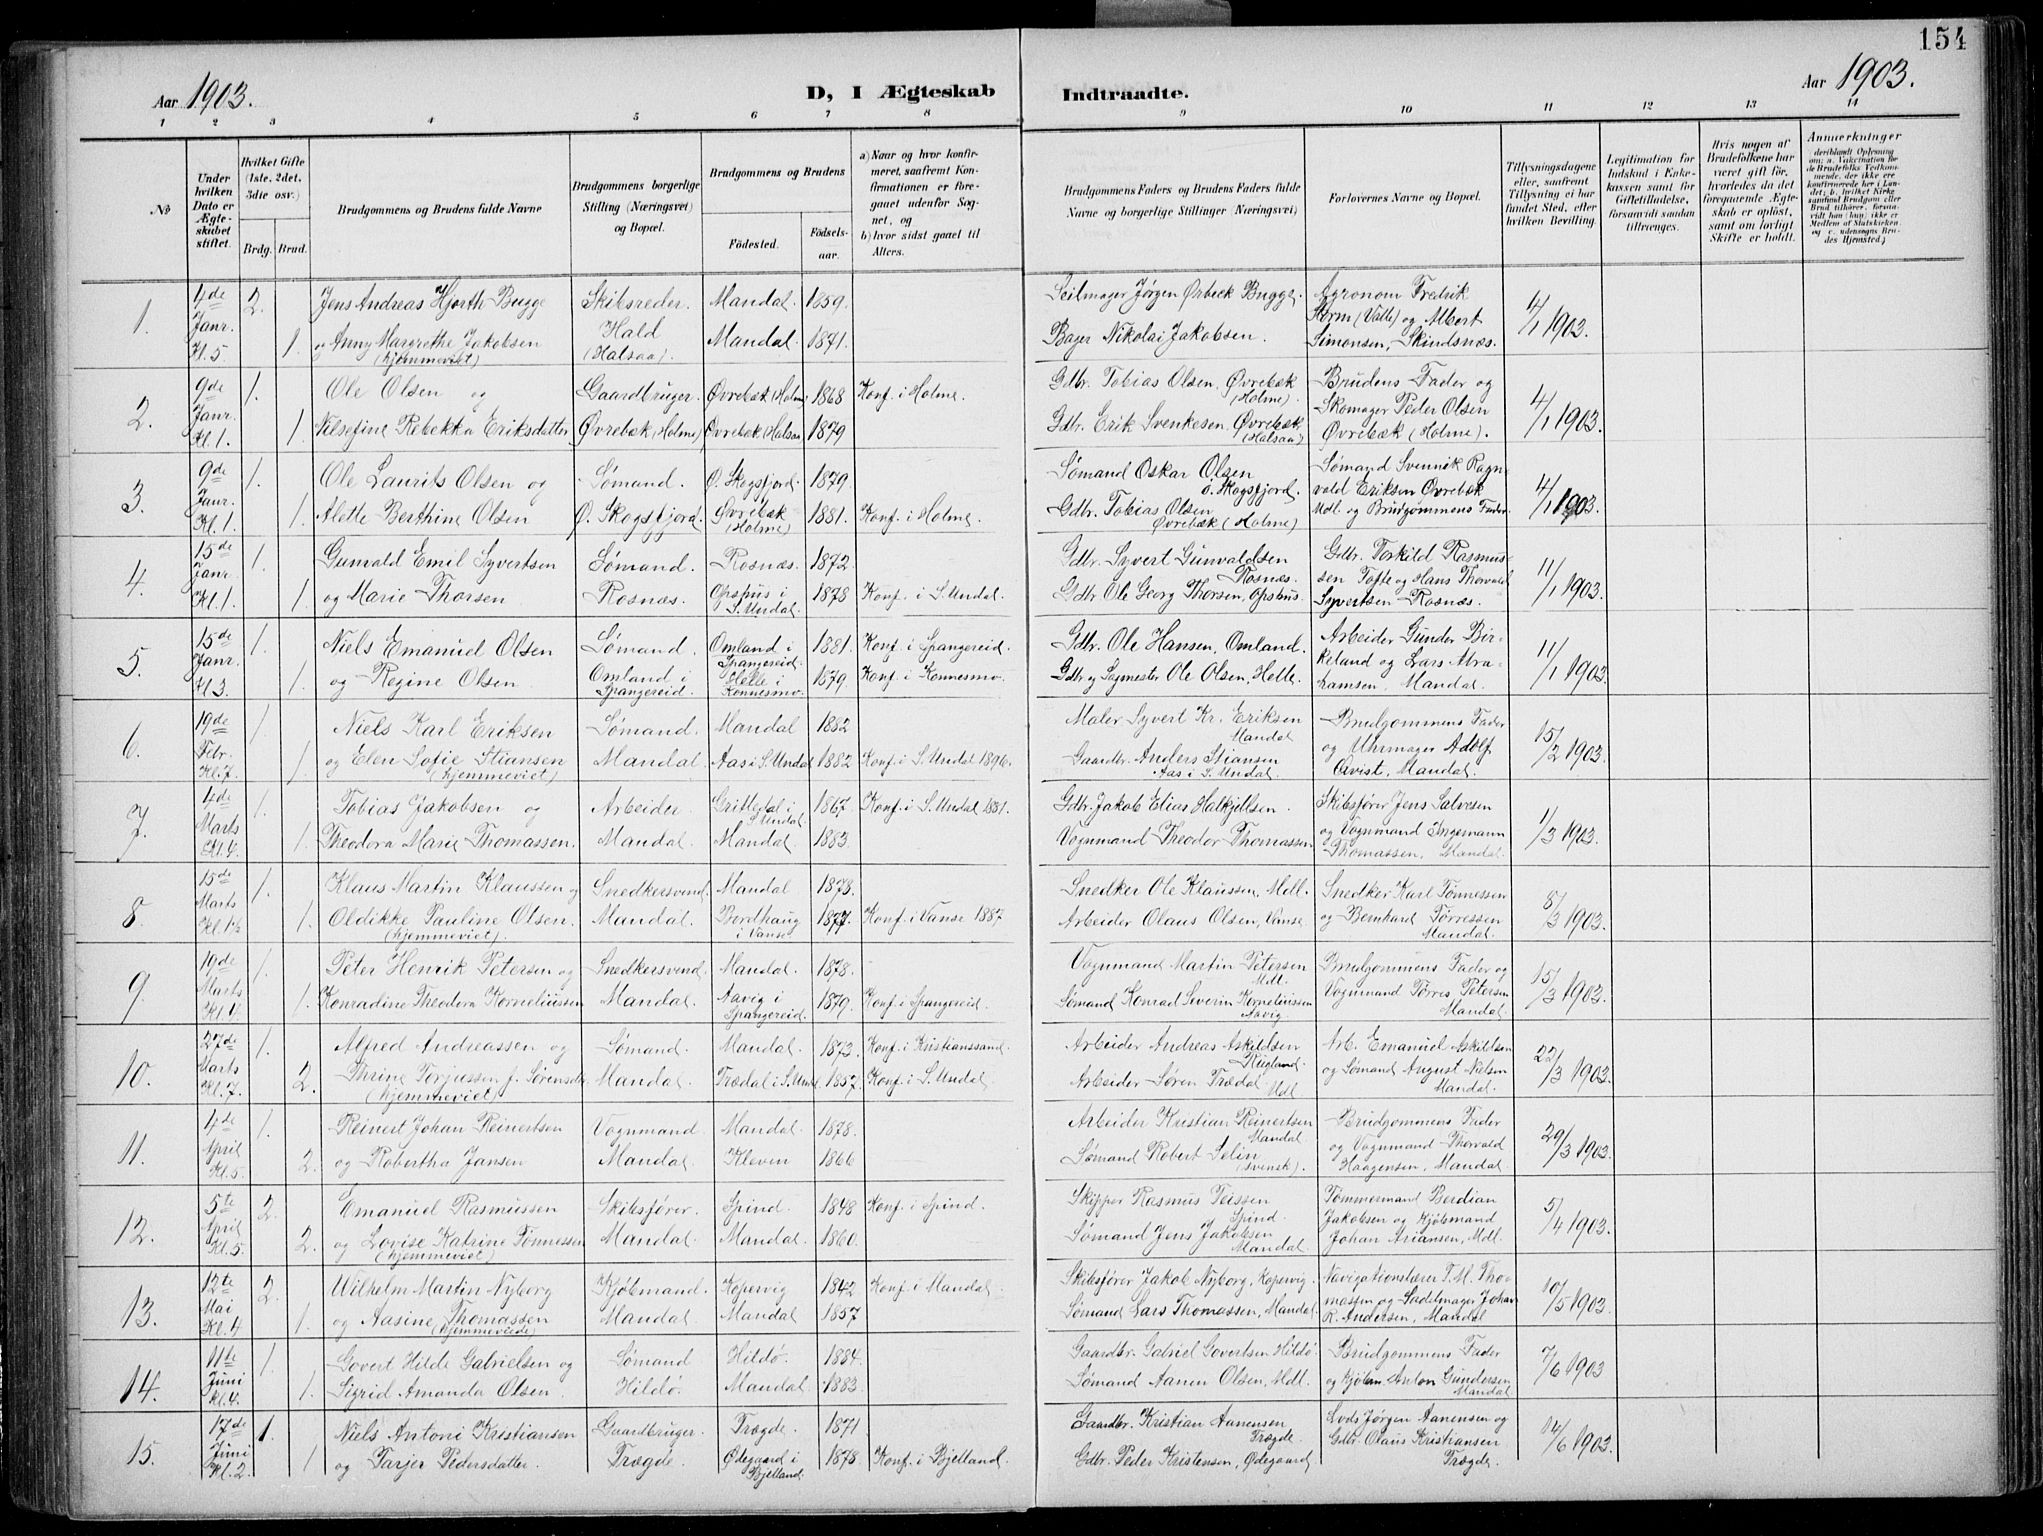 154
Aar 1903.
D, I Ægteskab Indtraadte.
Aar 1903.
1 2 3 4 5 6 7 8 9 10 11 12 13 14
No
Under hvilken Dato er Ægteskabet stiftet.
Hvilket Gifte (1ste, 2det, 3die osv.)
Brdg. Brud.
Brudgommens og Brudens fulde Navne
Brudgommens borgerlige Stilling (Næringsvei) og Bopæl.
Brudgommens og Brudens
Fødested. Fødselsaar.
a) Naar og hvor konfirmeret, saafremt Konfirmationen er foregaaet udenfor Sognet, og
b) hvor sidst gaaet til Alters.
Brudgommens Faders og Brudens Faders fulde Navne og borgerlige Stillinger (Næringsvei)
Forlovernes Navne og Bopæl.
Tillysningsdagene eller, saafremt Tillysning ei har fundet Sted, efter hvilken Bevilling.
Legitimation for Indskud i Enkekassen samt for Giftetilladelse, forsaavidt saadan tiltrænges.
Hvis nogen af Brudefolkene har været gift før, hvorledes da det foregaaende Ægteskab er opløst, samt om lovligt Skifte er holdt.
Anmerkninger
1. 4de Janr. Kl. 5 2. Jens Andreas Hjorth Bugge Skibsreder. Mandal. 1859. Seilmager Jørgen Ørbeck Bugge. Agronom Fredrik
Storm (Valle) og Albert 4/1 1903.
1. og Anny Margrethe Jakobsen Hald Mandal. 1871. Bager Nikolai Jakobsen. Simonsen, Skindsnæs.
(hjemmeviet) (Halsaa).
2. 9de Janr. Kl. 1. 1. Ole Olsen og Gaardbruger. Øvrebæk (Holme) 1868 Konf. i Holme. Gdbr. Tobias Olsen, Øvrebæk (Holme) Brudens Fader og
Skomager Peder Olsen 4/1 1903.
1 Nilsefine Rebekka Eriksdatter Øvrebæk (Holme) Øvrebæk (Halsaa) 1879 Gdbr. Erik Svenkesen, Øvrebæk (Halsaa) Øvrebæk (Holme).
3. 9de Janr. Kl. 1. 1. Ole Laurits Olsen og Sømand. Ø. Skogsfjord. 1879. Sømand Oskar Olsen Ø. Skogsfjord. Sømand Svennik Ragn-
vald Eriksen Øvrebæk 4/1 1903.
1. Alette Berthine Olsen Ø. Skogsfjord. Øvrebæk (Holme) 1881. Konf. i Holme. Gdbr. Tobias Olsen Øvrebæk (Holme) Mdl. og Brudgommens Fader.
4. 15de Janr. Kl. 1. 1. Gunvald Emil Syvertsen Sømand. Rosnæs. 1872. Gdbr. Syvert Gunvaldsen Rosnæs. Gdbr. Torkild Rasmus-
sen Tofte og Hans Thorvald 11/1 1903.
1 og Marie Thorsen Rosnæs. Opshus i S. Undal. 1878 Konf. i S. Undal. Gdbr Ole Georg Thorsen, Opshus. Syvertsen Rosnæs.
5. 15de Janr Kl 3. 1. Niels Emanuel Olsen Sømand. Omland i Spangereid. 1881. Konf. i Spangereid. Gdbr. Ole Hansen, Omland. Arbeider Gunder Bir-
keland og Lars Abra- 11/1 1903
1. og Regine Olsen Omland i Spangereid. Helle i Konnesmo. 1879. Konf. i Konnesmo. Gdbr og Sagmester Ole Olsen, Helle. hamsen, Mandal.
6. 19de Febr. Kl. 7. 1. Niels Karl Eriksen Sømand. Mandal 1882 Maler Syvert Kr. Eriksen Mandal Brudgommens Fader
og Uhrmager Adolf 15/2 1903.
1. og Elen Sofie Stiansen Mandal. Aas i S. Undal 1882 Konf. i S. Undal 1896. Gaardbr. Anders Stiansen Aas i S. Undal Qvist, Mandal.
(hjemmeviet)
7. 4de Marts Kl. 4. 1. Tobias Jakobsen og Arbeider. i S. Undal 1867. Konf. i S. Undal 1881. Gdbr. Jakob Elias Halkjeldsen. Skibsfører Jens Salvesen
og Vognmand Ingemann 1/3 1903.
1. Theodora Marie Thomassen. Mandal. Mandal. 1883. Vognmand Theodor Thomassen Thomassen, Mandal.
8. 15de Marts Kl. 1½ 1. Klaus Martin Klaussen og Snedkersvend. Mandal 1878. Snedker Ole Klaussen, Mdl. Snedker Karl Tønnessen
1. Oldikke Pauline Olsen. Mandal. Bordhaug i Vanse 1877 Konf. i Vanse 1887 Arbeider Olaus Olsen, Vanse. og Bernhard Tørressen Mandal. 8/3 1903.
(hjemmeviet).
9. 19de Marts Kl. 4. 1. Peter Henrik Petersen og Snedkersvend. Mandal. 1878. Vognmand Martin Petersen Mdl. Brudgommens Fader og
1. Konradine Theodora Korneliussen Mandal. Aavig i Spangereid. 1879. Konf. i Spangereid. Sømand Konrad Severin Korneliussen Aavig. Vognmand Tørres Petersen Mandal. 15/3 1903.
10. 27de Marts Kl. 7. 1. Alfred Andreassen og Sømand. Mandal. 1873. Konf. i Kristianssand. Arbeider Andreas Askildsen Arb. Emanuel Askildsen
2. Thrine Torjussen f. Sørensdtr. Mandal. Trædal i S. Undal 1857. Konf. i S. Undal Arbeider Søren Trædal Mdl og Sømand August Nielsen Mandal. 22/3 1903.
(hjemmeviet)
11. 4de April Kl. 5. 1. Reinert Johan Reinertsen Vognmand. Mandal. 1878. Arbeider Kristian Reinertsen Mandal. Brudgommens Fader
og Vognmand Thorvald 29/3 1903.
2. og Robertha Jansen Mandal. Kleven 1866 Sømand Robert Selin (svensk). Haagensen, Mandal.
12. 5te April Kl. 5. 2. Emanuel Rasmussen Skibsfører. Spind. 1848 Konf. i Spind. Skipper Rasmus Teissen Spind. Tømmermand Berdian
Jakobsen og Kjøbmand 5/4 1903.
2. og Lovise Katrine Tønnessen Mandal. Mandal. 1860. Sømand Jens Jakobsen Mandal Johan Ariansen, Mdl.
(hjemmeviet)
13. 12te Mai Kl. 4 2. Wilhelm Martin Nyborg Kjøbmand. Kopervig 1842 Konf. i Mandal. Skibsfører Jakob Nyborg, Kopervig. Navigationslærer T. M. Tho-
massen og Sadelmager Johan 10/5 1903.
1. og Aasine Thomassen Mandal. Mandal 1857 Sømand Lars Thomassen, Mandal. R. Andersen, Mandal
(hjemmeviede)
14. 11te Juni Kl. 4. 1. Govert Hilde Gabrielsen og Sømand Hildø. 1884. Gaardbr. Gabriel Govertsen Hildø. Brudgommens Fader
1. Sigrid Amanda Olsen. Hildø. Mandal. 1883. Sømand Aanen Olsen, Mdl. og Kjøbm. Anton Gundersen Mandal 7/6 1903
15. 17de Juni Kl. 2. 1. Niels Antoni Kristiansen Gaardbruger. Trægde. 1871 Gaardbr. Kristian Aanensen Trægde. Lods Jørgen Aanensen og
1 og Tarjer Pedersdatter. Trægde. Ødegaard i Bjelland. 1878 Konf. i Bjelland. Gdbr. Peder Kristensen, Ødegaard. Gdbr. Olaus Kristiansen Trægde. 14/6 1903.